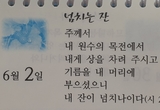 넘치는 잔
주께서
내 원수의 목전에서
내게 상을 차려 주시고
기름을 내 머리에
부으셨으니
내 잔이 넘치나이다(시
6월 2일